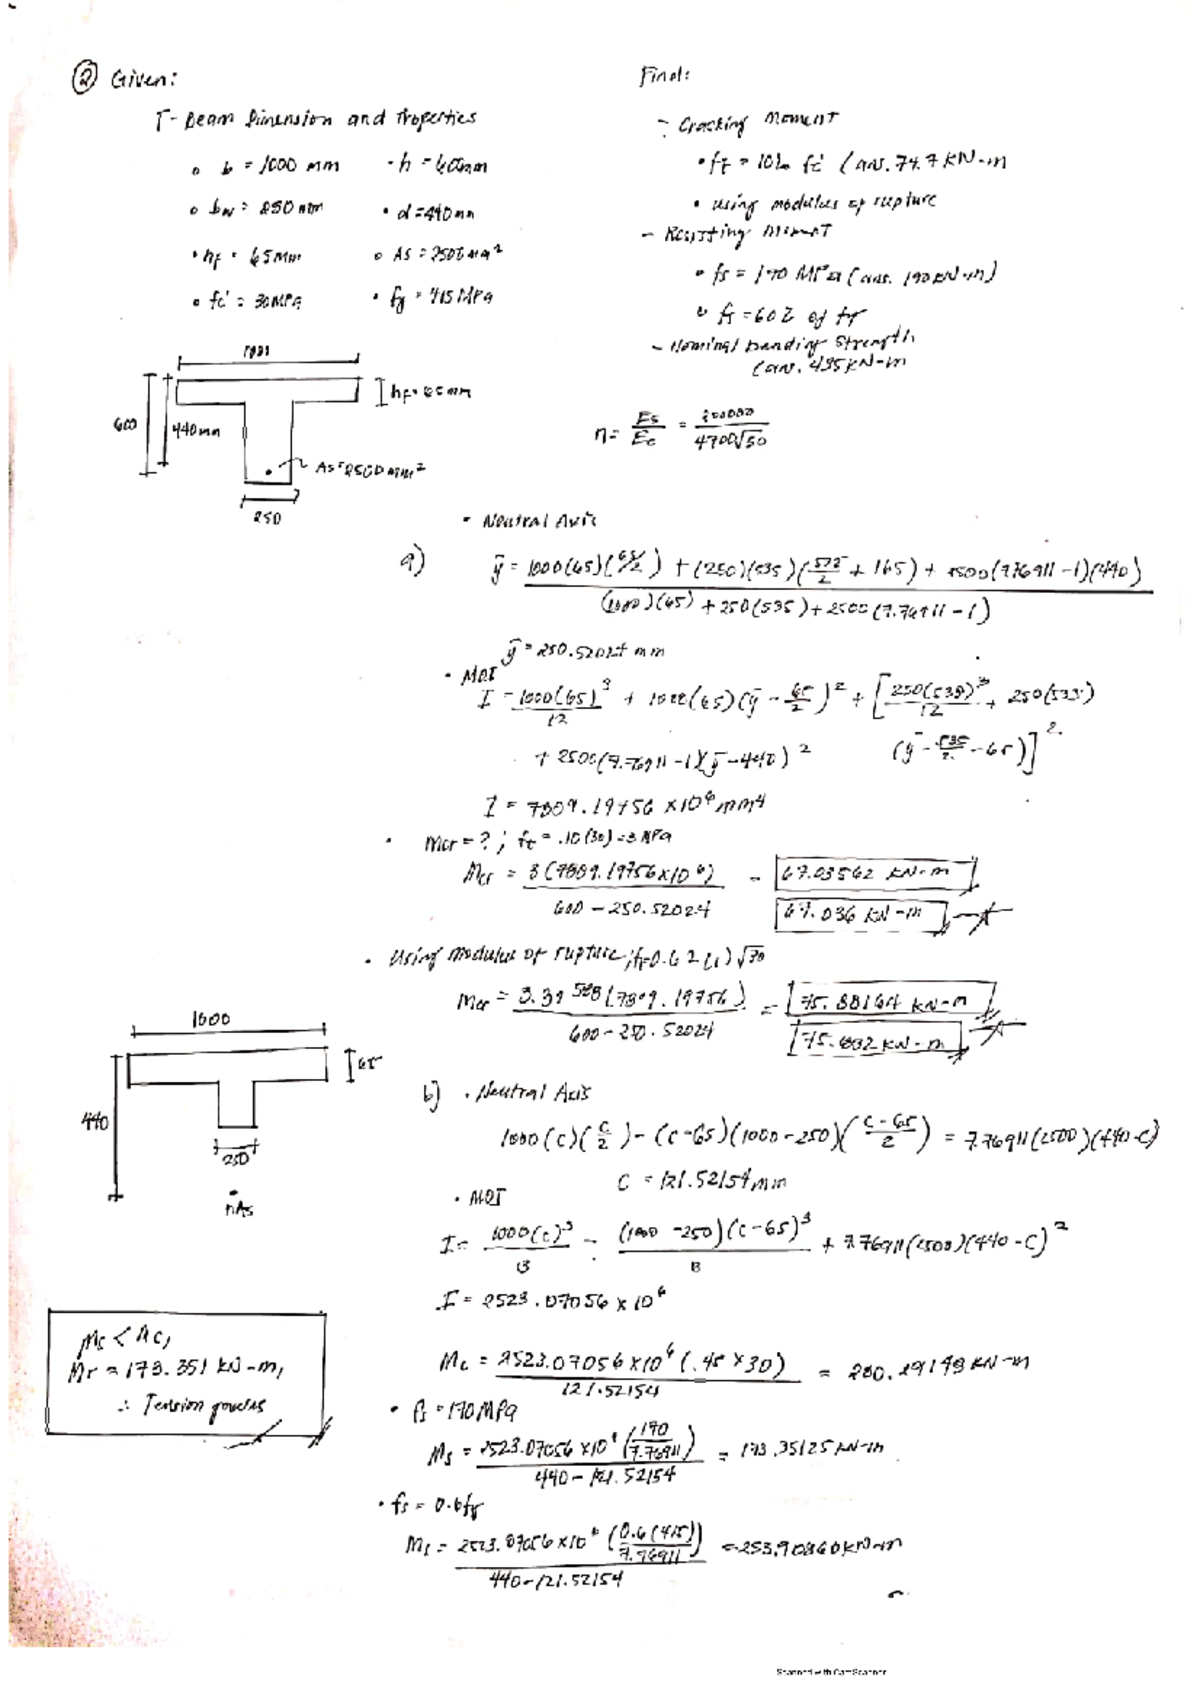 ② Given:
T-Beam Dimension and Properties
b = 1000 mm
h = 600mm
bw = 250 mm
d = 440 mm
hf = 65mm
As = 2500 mm²
fc' = 30MPa
fy = 415 MPa
Find:
- Cracking Moment
• fr = 10% fc' (ans. 74.7 KN-m
• using modulus of rupture
- Resisting Moment
• fs = 170 MPa (ans. 190KN-m)
• fs = 60% of fy
- Nominal bending Strength
(ans. 435KN-m
n = Es/Ec = 200000/4700√30
1000
hf = 65mm
600
440mm
As = 2500 mm²
250
• Neutral Axis
a) ȳ = 1000(65)(65/2) + (250)(535)(535/2 + 65) + 2500(7.76911-1)(440)
(1000)(65) + 250(535) + 2500(7.76911-1)
ȳ = 250.52024 mm
• MOI
I = 1000(65)³/12 + 1000(65)(ȳ - 65/2)² + [250(535)³/12 + 250(535)
+ 2500(7.76911-1)(ȳ-440)² (ȳ - 535/2 - 65)]²
I = 7809.19756 x10⁶ mm⁴
• Mcr = ? ; ft = .10(30) = 3 MPa
Mcr = 3(7809.19756x10⁶)/600-250.52024 = 67.03562 KN-m
67.036 KN-m
• Using modulus of rupture; fr=0.62(1)√30
Mcr = 3.39588(7809.19756)/600-250.52024 = 75.88164 KN-m
75.882 KN-m
1000
65
440
250
nAs
b) • Neutral Axis
1000(c)(c/2) - (c-65)(1000-250)(c-65/2) = 7.76911(2500)(440-c)
C = 121.52154mm
• MOI
I = 1000(c)³/3 - (1000-250)(c-65)³/3 + 7.76911(2500)(440-c)²
I = 2523.07056 x 10⁶
Mc = 2523.07056x10⁶(.45x30)/121.52154 = 280.29143 KN-m
• fs = 170MPa
Ms = 2523.07056 x10⁶(170/7.76911)/440-121.52154 = 173.35125 KN-m
• fs = 0.6fy
Ms = 2523.07056x10⁶(0.6(415)/7.76911)/440-121.52154 = 253.90860KN-m
Ms < Mc,
Mr = 173.351 KN-m,
∴ Tension governs
Scanned with CamScanner